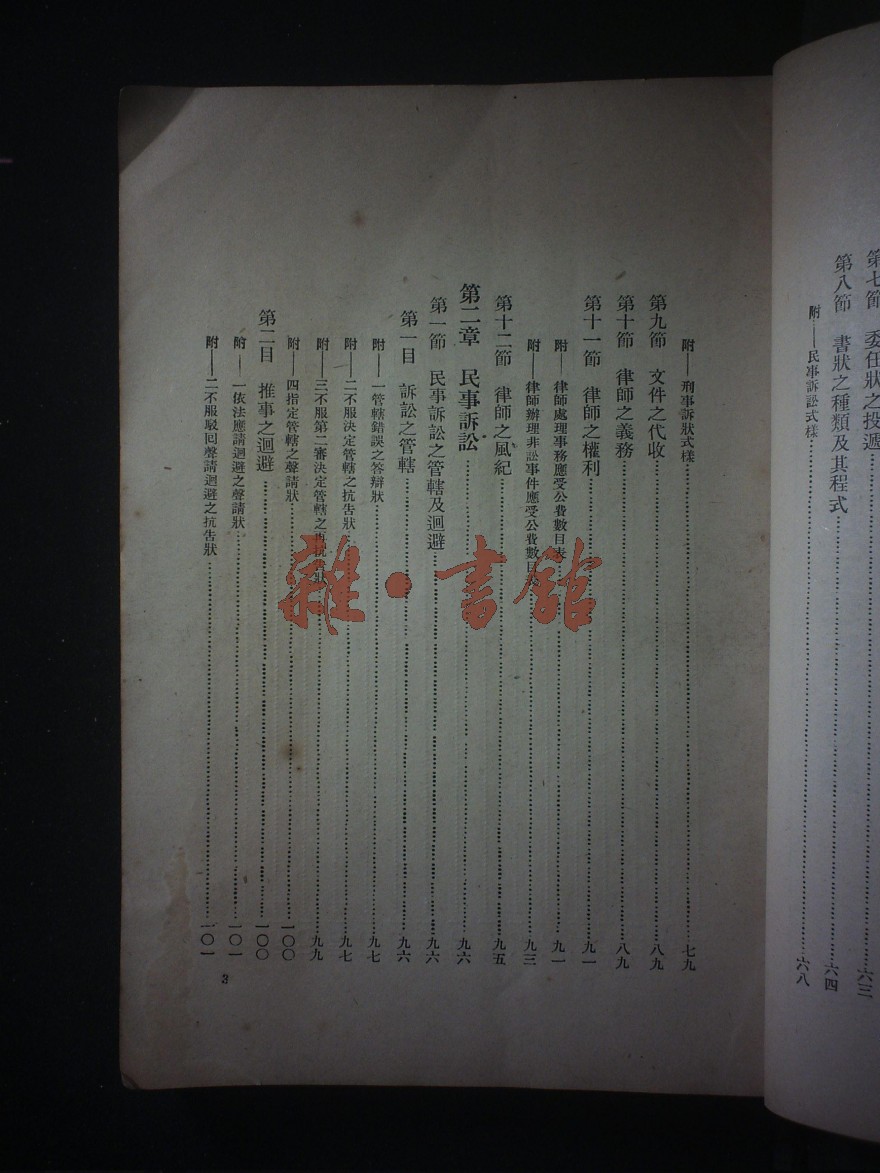 第七節　委任狀之投遞……六三
第八節　書狀之種類及其程式……六四
附——民事訴訟式樣……六八
附——刑事訴狀式樣……七九
第九節　文件之代收……八九
第十節　律師之義務……八九
第十一節　律師之權利……九一
附——律師處理事務應受公費數目表……九一
附——律師辦理非訟事件應受公費數目表……九三
第十二節　律師之風紀……九五
第二章　民事訴訟……九六
第一節　民事訴訟之管轄及迴避……九六
第一目　訴訟之管轄……九六
附——一管轄錯誤之答辯狀……九七
附——二不服決定管轄之抗告狀……九七
附——三不服第二審決定管轄之再抗告狀……九九
附——四指定管轄之聲請狀……一〇〇
第二目　推事之迴避……一〇〇
附——一依法應請迴避之聲請狀……一〇一
附——二不服駁回聲請迴避之抗告狀……一〇一
3
雜·書館